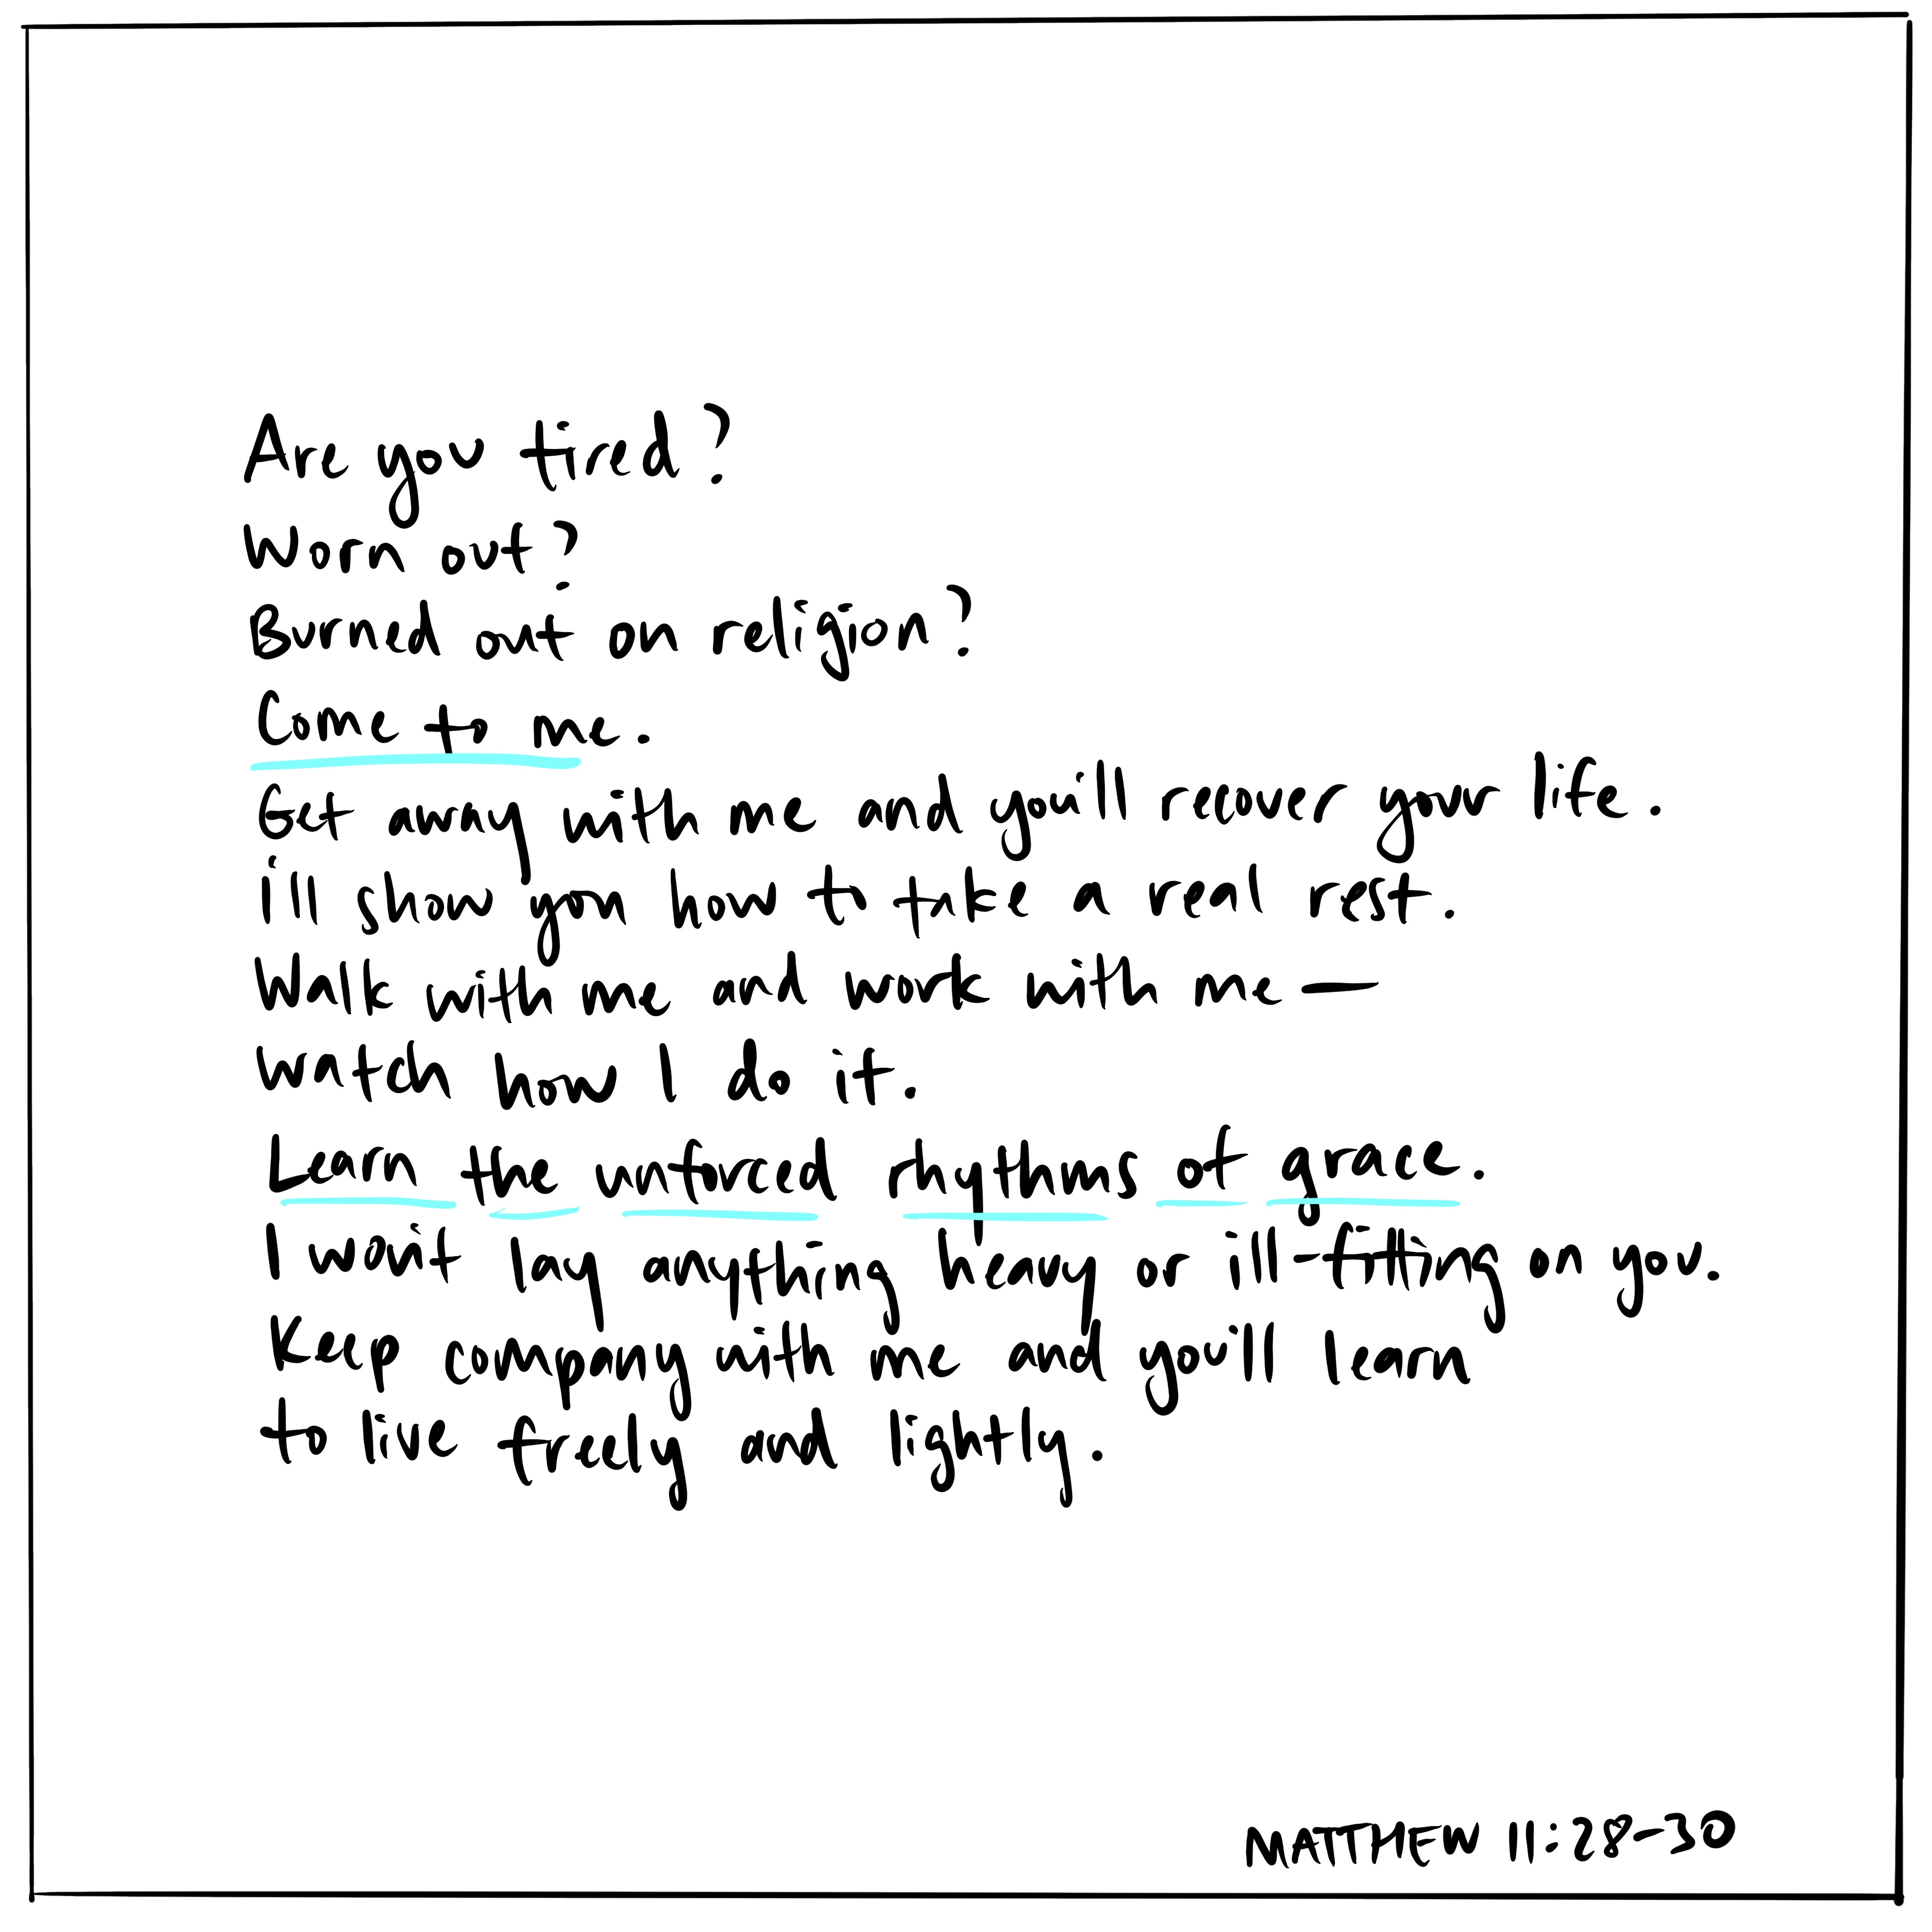 Are you tired?
Worn out?
Burned out on religion?
Come to me.
Get away with me and you'll recover your life.
i'll show you how to take a real rest.
Walk with me and work with me —
watch how I do it.
Learn the unforced rhythms of grace.
I won't lay anything heavy or ill-fitting on you.
Keep company with me and you'll learn
to live freely and lightly.
MATTHEW 11:28-30